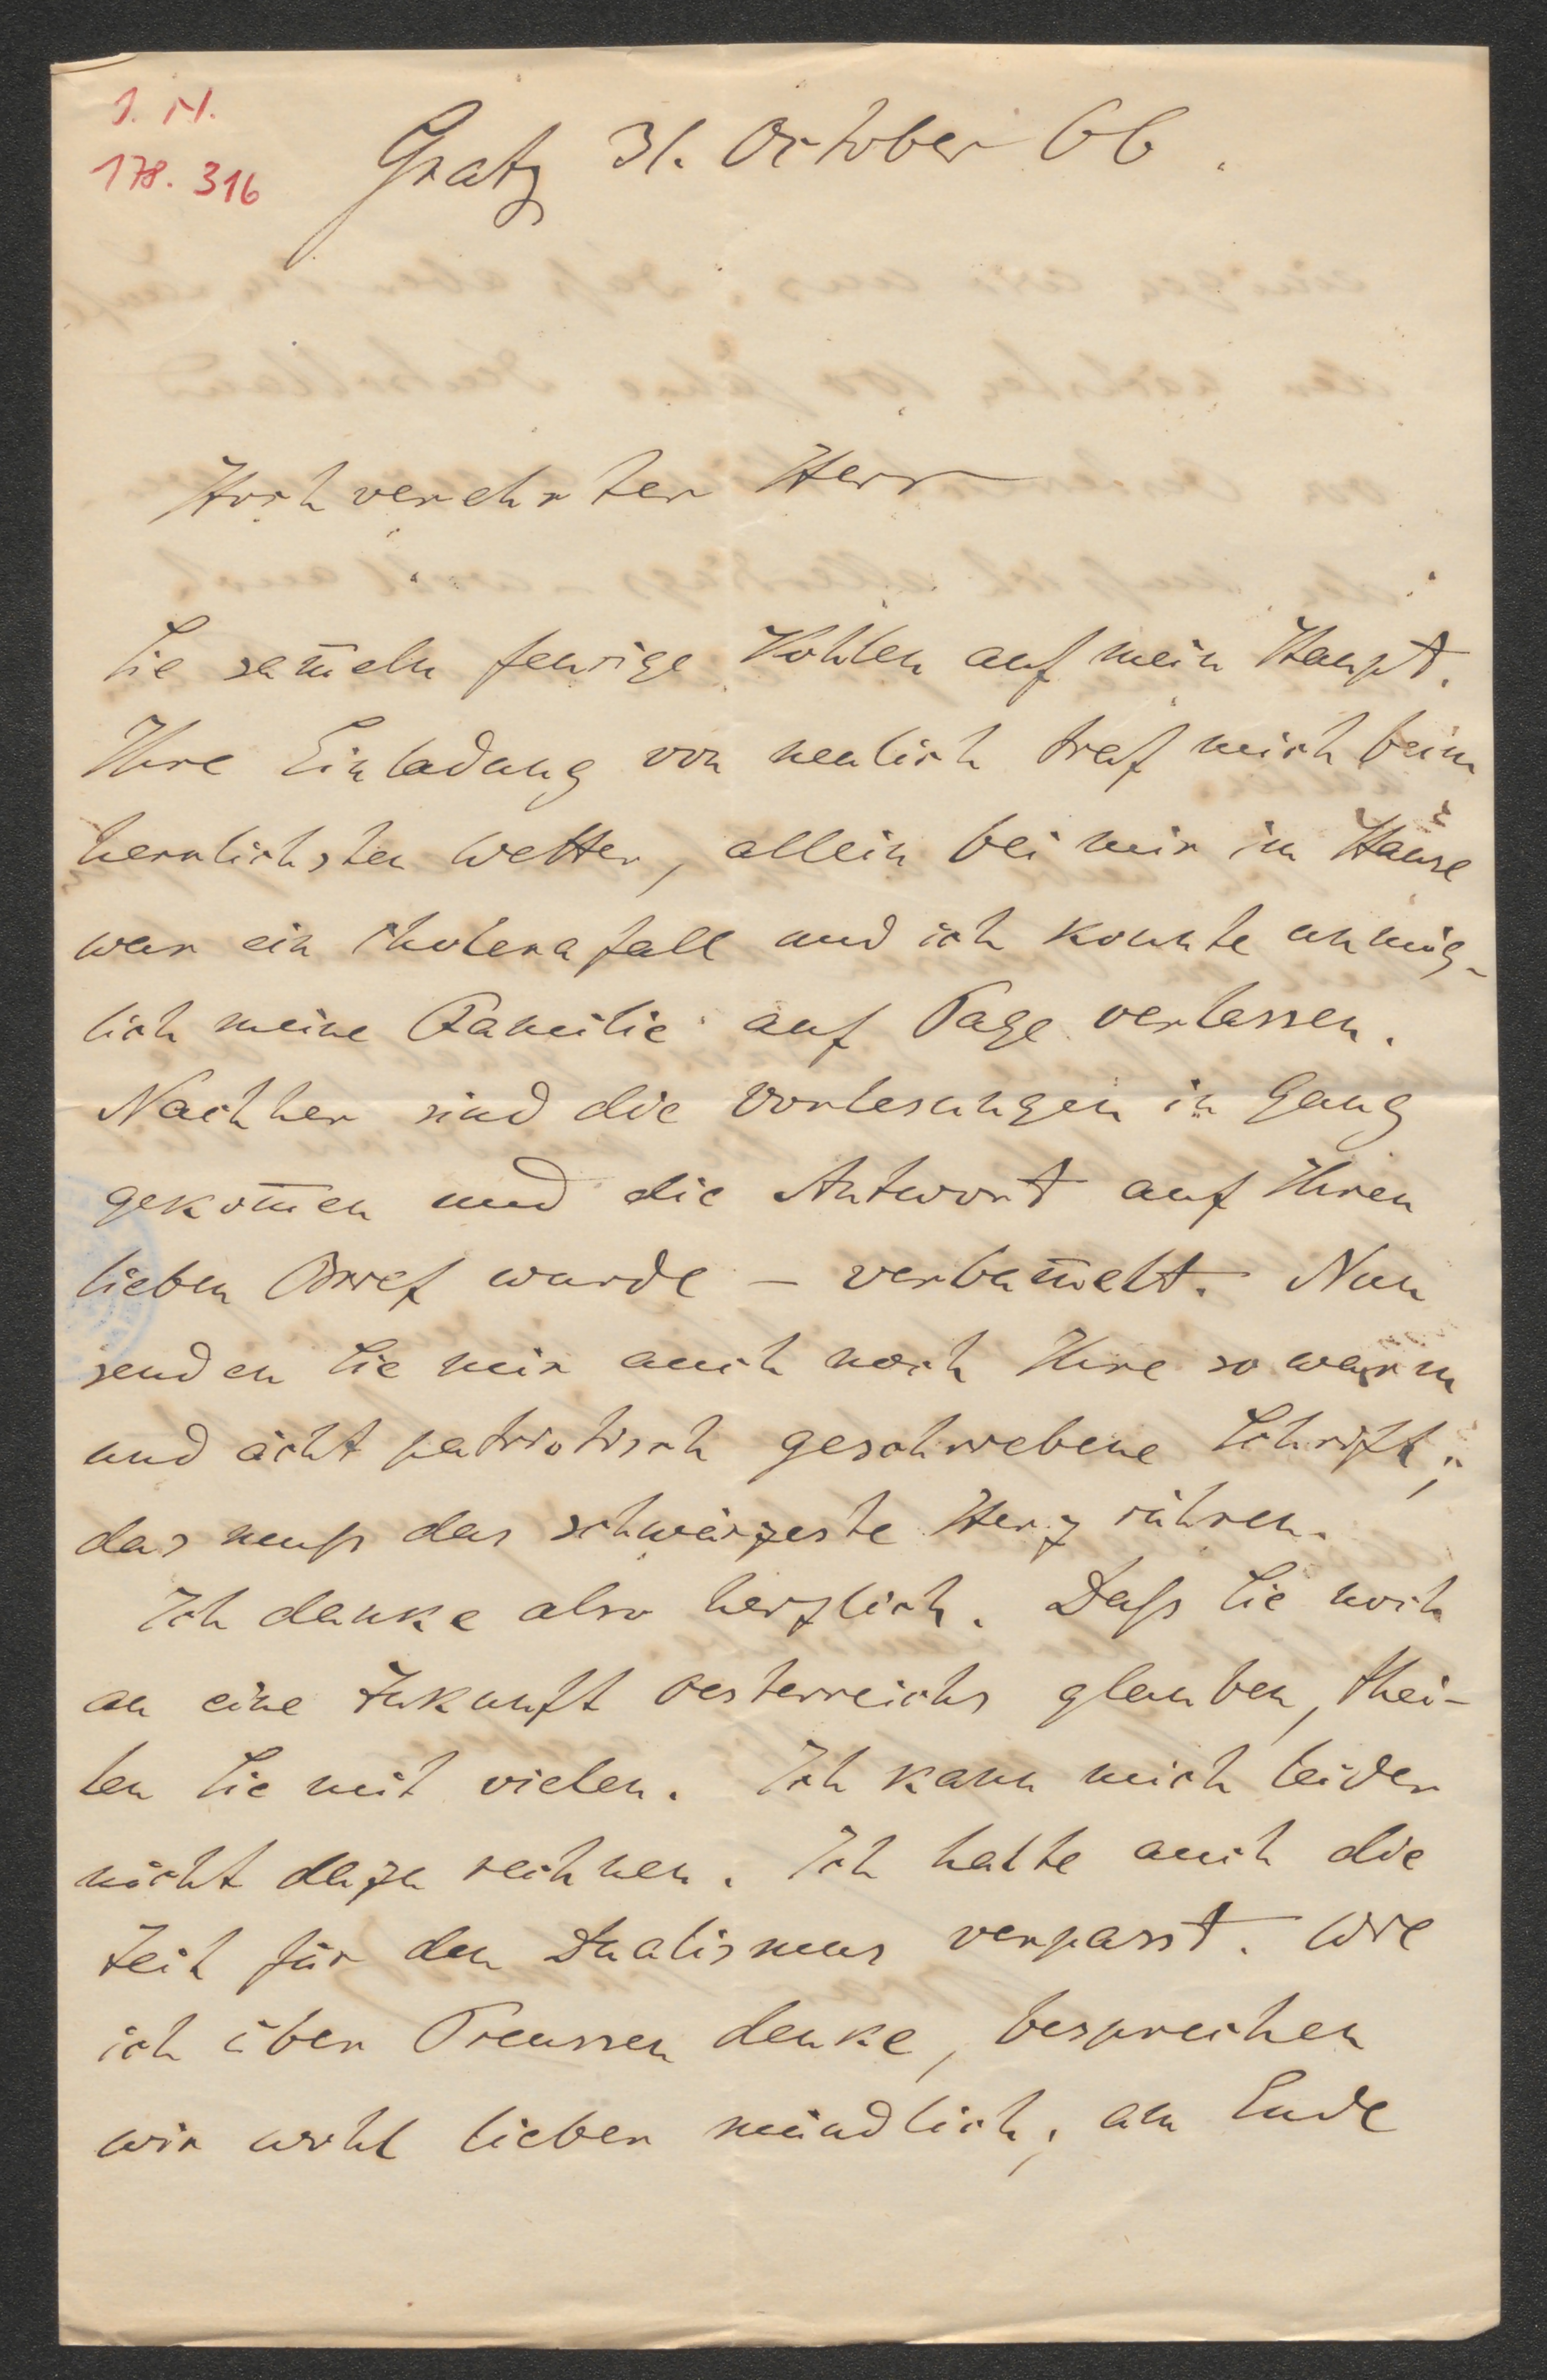 I. N.
178.316
Gratz 31. October 66.
Hochverehrter Herr
Sie sam̄eln feurige Kohlen auf mein Haupt.
Ihre Einladung von neulich traf mich beim
herrlichsten Wetter, allein bei mir im Hause
war ein Cholerafall und ich konnte unmög-
lich meine Familie auf Tage verlassen.
Nachher sind die Vorlesungen in Gang
gekom̄en und die Antwort auf Ihren
lieben Brief wurde – verbum̄elt. Nun
senden Sie mir auch noch Ihre so warm
und ächt patriotisch geschriebene Schrift;
das muß das schwärzeste Herz rühren.
Ich danke also herzlich. Daß Sie noch
an eine Zukunft Oesterreichs glauben, thei-
len Sie mit vielen. Ich kann mich leider
nicht dazu rechnen. Ich halte auch die
Zeit für den Dualismus verpasst. Wie
ich über Preussen denke, besprechen
wir wohl lieber mündlich, am Ende